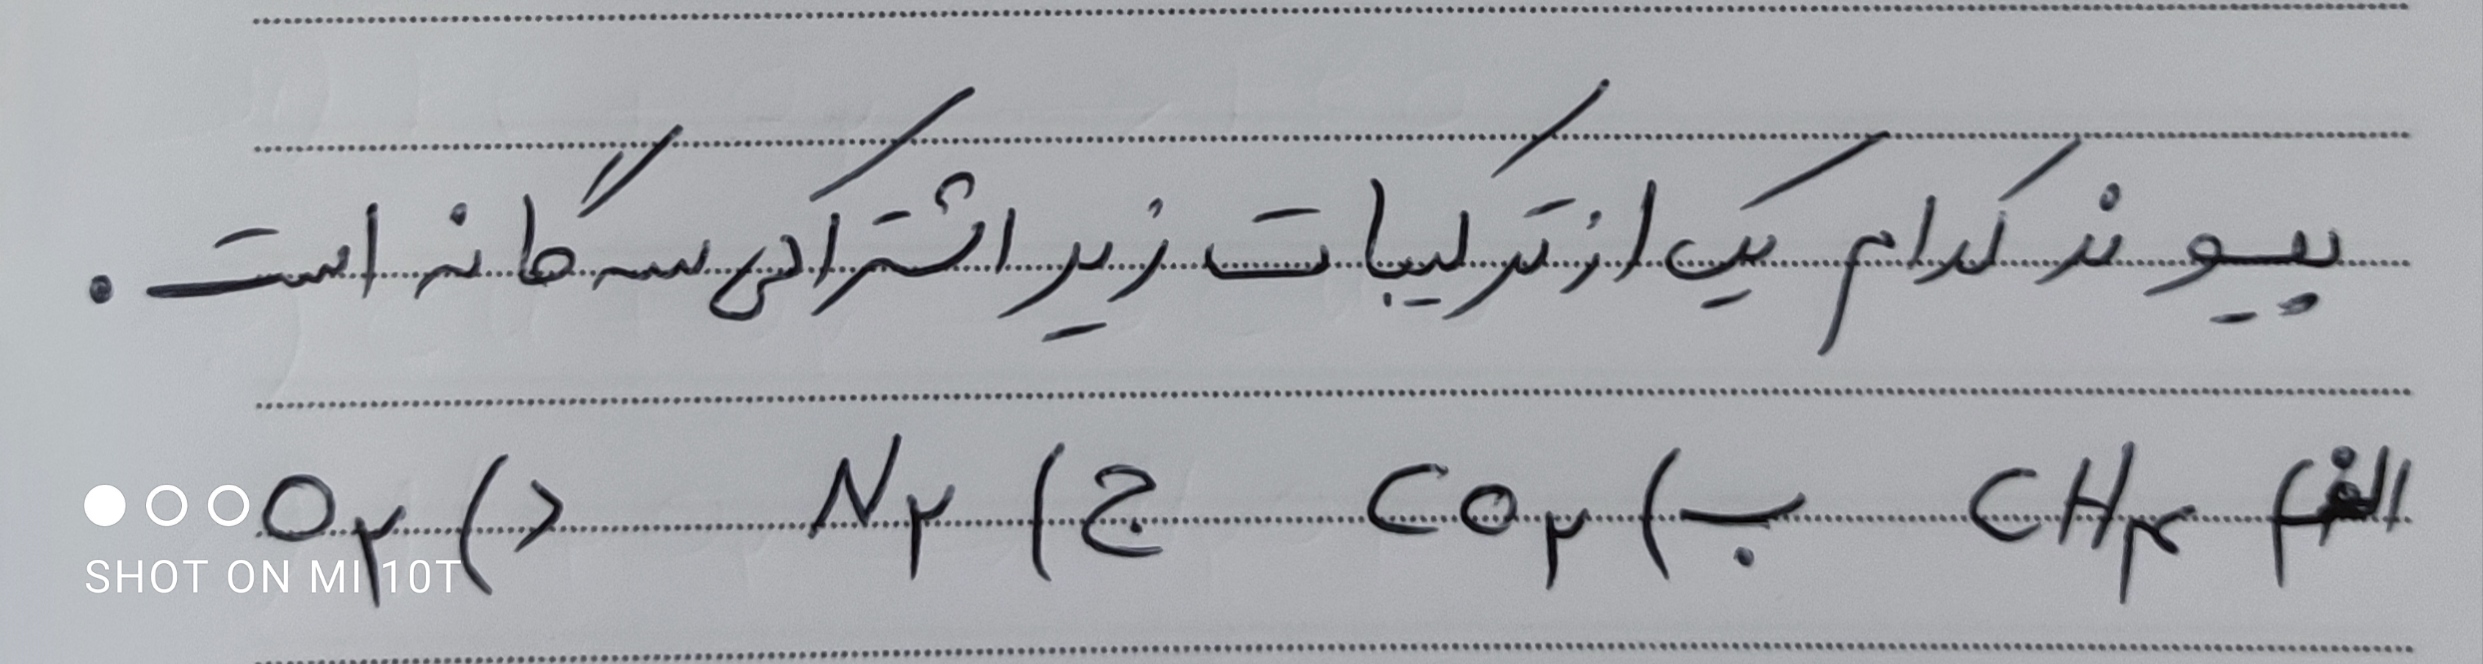 پیوند کدام یک از ترکیبات زیر اشتراکی سه گانه است .
الف) CH۴ ب) CO۲ ج) N۲ د) O۲
SHOT ON MI 10T